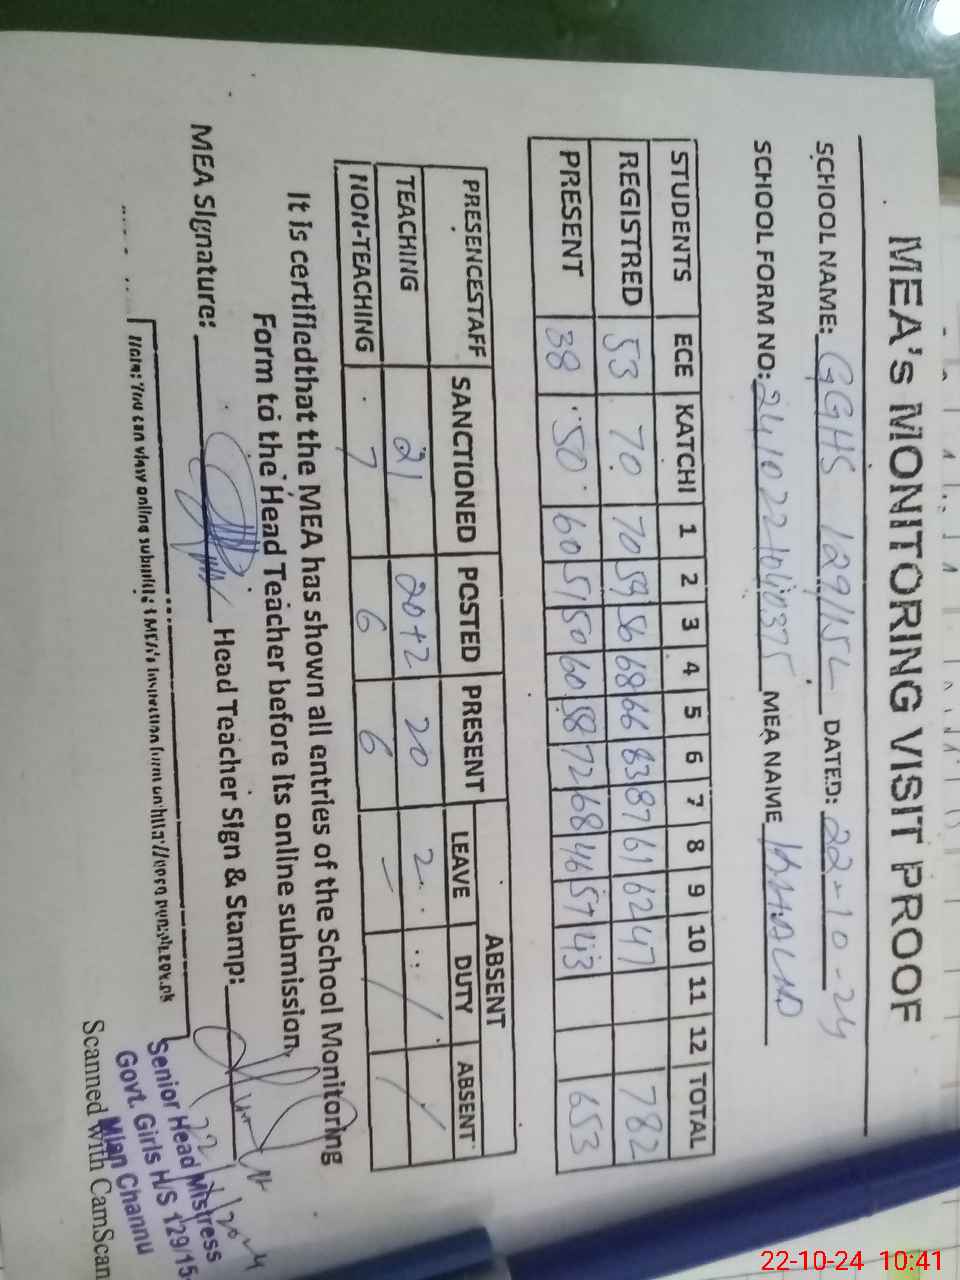 MEA's MONITORING VISIT PROOF
SCHOOL NAME: GGHS 129/15L DATED: 22-10-24
SCHOOL FORM NO: MEA NAME KHALID
STUDENTS ECE KATCHI 1 2 3 4 5 6 7 8 9 10 11 12 TOTAL
REGISTRED 53 70 70 59 56 68 66 83 87 61 62 47 782
PRESENT 38 50 60 51 50 60 58 72 68 46 57 43 653
PRESENCESTAFF SANCTIONED POSTED PRESENT ABSENT
LEAVE DUTY ABSENT
TEACHING 21 20+2 20 2 / /
NON-TEACHING 7 6 6 – / /
It is certifiedthat the MEA has shown all entries of the School Monitoring
Form to the Head Teacher before its online submission.
MEA Signature: Head Teacher Sign & Stamp:
Note: You can view online submitted MEA's
Senior Head Mistress
Govt. Girls H/S 129/15-
Mian Channu
Scanned with CamScan
22-10-24 10:41